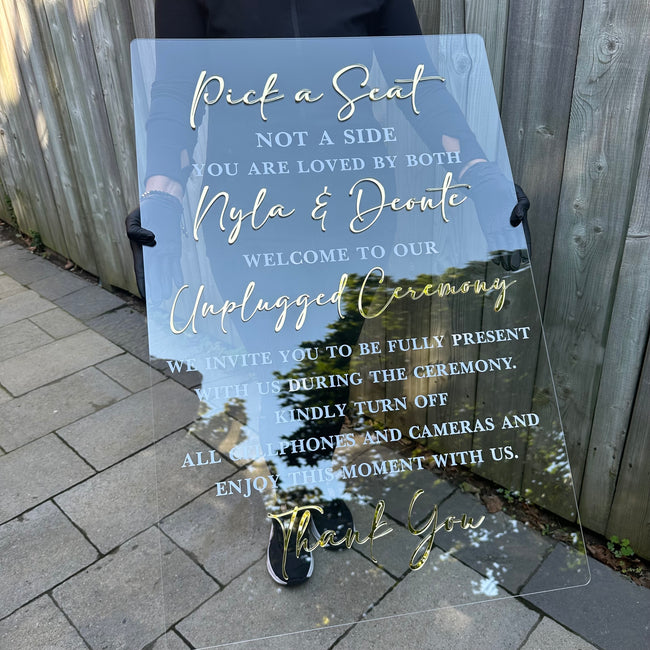 Pick a Seat
NOT A SIDE
YOU ARE LOVED BY BOTH
Nyla & Deonte
WELCOME TO OUR
Unplugged Ceremony
WE INVITE YOU TO BE FULLY PRESENT
WITH US DURING THE CEREMONY.
KINDLY TURN OFF
ALL CELLPHONES AND CAMERAS AND
ENJOY THIS MOMENT WITH US.
Thank You